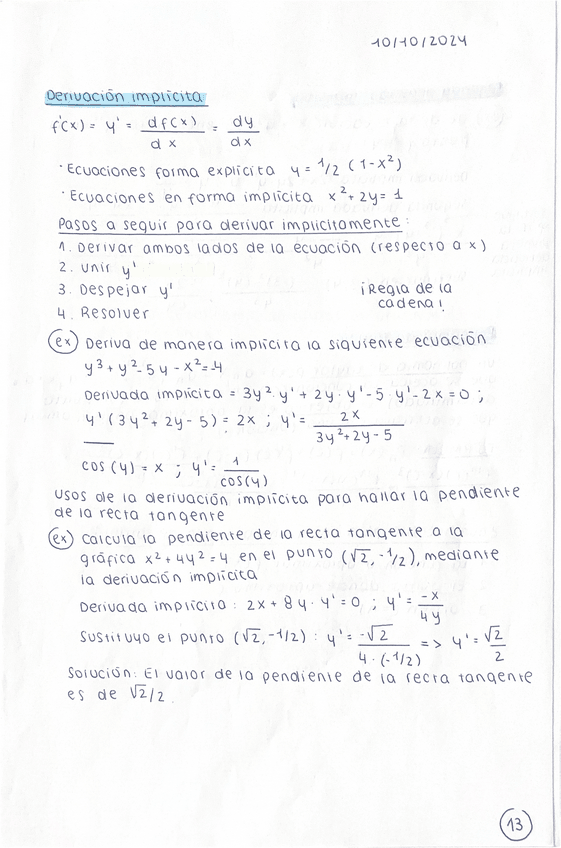 10/10/2024
Derivación implícita
f'(x) = y' = df(x)/dx = dy/dx
· Ecuaciones forma explícita y = 1/2 (1-x²)
· Ecuaciones en forma implícita x² + 2y = 1
Pasos a seguir para derivar implícitamente:
1. Derivar ambos lados de la ecuación (respecto a x)
2. Unir y'
3. Despejar y' ¡Regla de la
4. Resolver cadena!
ex) Deriva de manera implícita la siguiente ecuación
y³ + y² - 5y - x² = -4
Derivada implícita = 3y² · y' + 2y · y' - 5 · y' - 2x = 0 ;
y' (3y² + 2y - 5) = 2x ; y' = 2x/(3y² + 2y - 5)
cos (y) = x ; y' = 1/cos(y)
Usos de la derivación implícita para hallar la pendiente
de la recta tangente
ex) Calcula la pendiente de la recta tangente a la
gráfica x² + 4y² = 4 en el punto (√2, -1/2), mediante
la derivación implícita
Derivada implícita : 2x + 8y · y' = 0 ; y' = -x/4y
Sustituyo el punto (√2, -1/2) : y' = -√2/(4 · (-1/2)) => y' = √2/2
Solución: El valor de la pendiente de la recta tangente
es de √2/2.
13